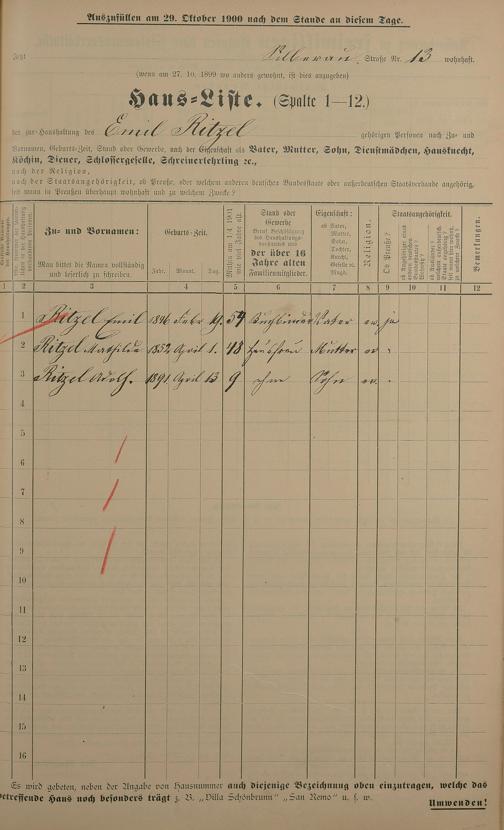 Auszufüllen am 29. Oktober 1900 nach dem Stande an diesem Tage.
Jetzt Silberau, Straße Nr. 13 wohnhaft.
(wenn am 27. 10. 1899 wo anders gewohnt, ist dies anzugeben)
Haus-Liste. (Spalte 1—12.)
der zur Haushaltung des Emil Ritzel gehörigen Personen nach Zu- und
Vornamen, Geburts-Zeit, Stand oder Gewerbe, nach der Eigenschaft als Vater, Mutter, Sohn, Dienstmädchen, Hausknecht,
Köchin, Diener, Schlossergeselle, Schreinerlehrling ec.,
nach der Religion,
nach der Staatsangehörigkeit, ob Preuße, oder welchem anderen deutschen Bundesstaate oder außerdeutschen Staatsverbande angehörig,
seit wann in Preußen überhaupt wohnhaft und zu welchem Zwecke?
Zu- und Vornamen:
Man bittet die Namen vollständig
und leserlich zu schreiben.
Geburts-Zeit.
Jahr. Monat. Tag.
Stand oder
Gewerbe
der über 16
Jahre alten
Familienmitglieder.
Eigenschaft:
ob Vater,
Mutter,
Sohn,
Tochter,
Knecht,
Geselle o.
Magd.
Religion.
Staatsangehörigkeit.
Ob Preuße?
Bemerkungen.
1 2 3 4 5 6 7 8 9 10 11 12
1 Ritzel Emil 1846 Febr 19. 54 Vater ev. ja
2 Ritzel Mathilde 1852 April 1. 48 Hausfrau Mutter ev "
3 Ritzel Adolf. 1891 April 13 9 ohne Sohn ev. "
4
5
6
7
8
9
10
11
12
13
14
15
16
Es wird gebeten, neben der Angabe von Hausnummer auch diejenige Bezeichnung oben einzutragen, welche das
betreffende Haus noch besonders trägt z. B. „Villa Schönbrunn" „San Remo" u. s. w.
Umwenden!